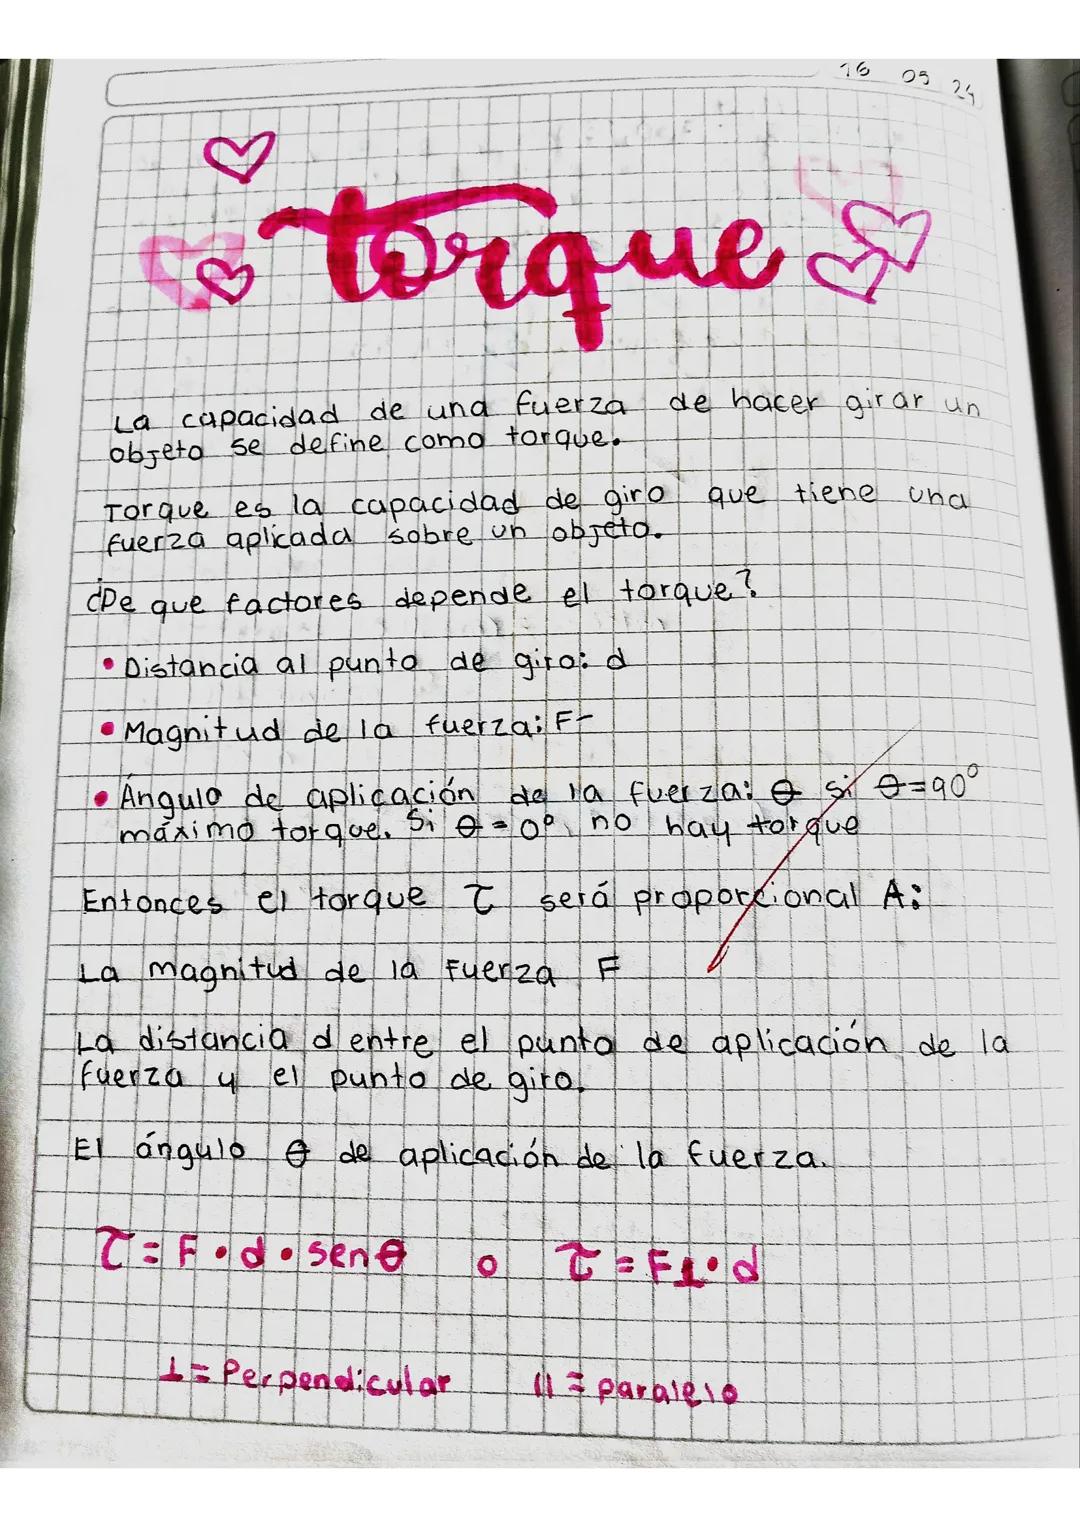 16 09 24
torque
La capacidad de una fuerza de hacer girar un
objeto se define como torque.
Torque es la capacidad de giro que tiene una
fuerza aplicada sobre un objeto.
¿De que factores depende el torque?
• Distancia al punto de giro: d
• Magnitud de la fuerza: F-
• Ángulo de aplicación de la fuerza: θ si θ=90°
máximo torque. Si θ=0° no hay torque
Entonces el torque τ será proporcional A:
La magnitud de la Fuerza F
La distancia d entre el punto de aplicación de la
fuerza y el punto de giro.
El ángulo θ de aplicación de la fuerza.
τ = F • d • senθ o τ = F⊥ • d
⊥ = Perpendicular || = paralelo